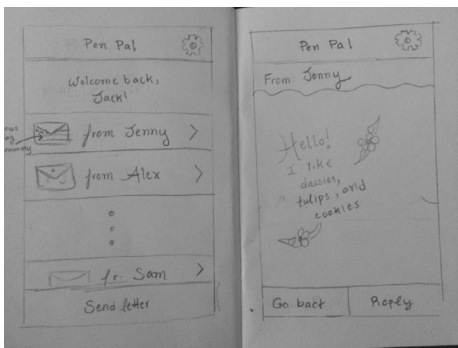 Pen Pal
Welcome back,
Jack!
from Jenny
from Alex
fr. Sam
Send letter
Pen Pal
From Jenny
Hello!
I like
daisies,
tulips, and
cookies
Go back
Reply